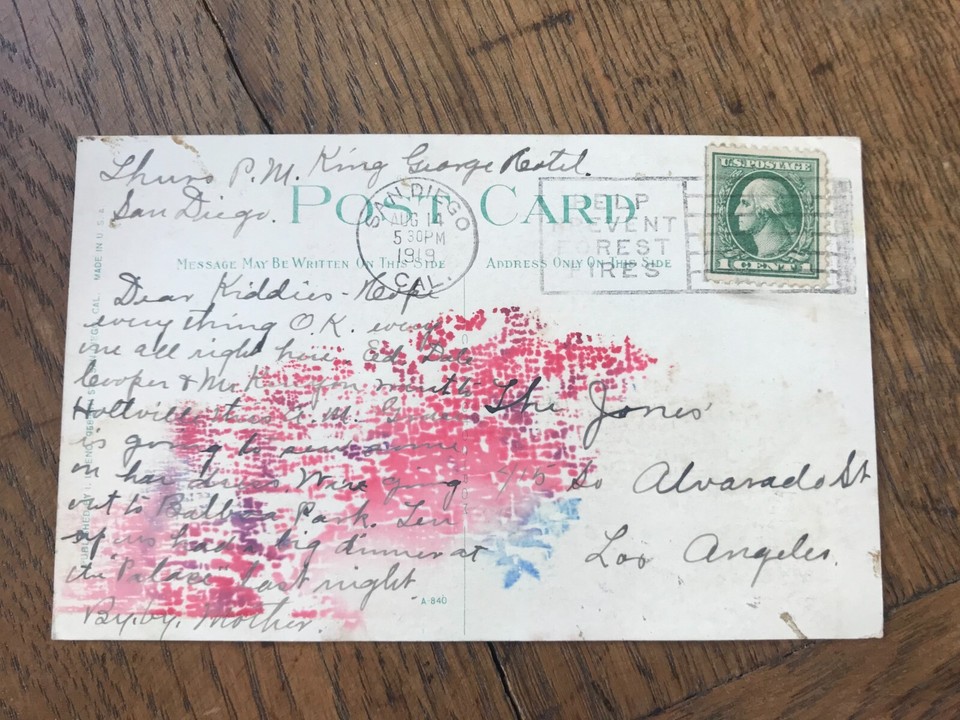 Thurs P.M. King George Hotel.
San Diego.
POST CARD
SAN DIEGO
AUG 14
5 30PM
1919
CAL.
FOREST
FIRES
U.S. POSTAGE
1 CENT 1
MADE IN U.S.A.
MESSAGE MAY BE WRITTEN ON THIS SIDE
ADDRESS ONLY ON THIS SIDE
Dear Kiddies - Hope
everything O.K. every
one all right here. Ed Dale
Cooper &
Holtville A.M.
is going to sew some
on her dress. We're going
out to Balboa Park. Ten
of us had a big dinner at
the "Palace" last night.
By. by. Mother.
A-840
The Jones'
So Alvarado St
Los Angeles.